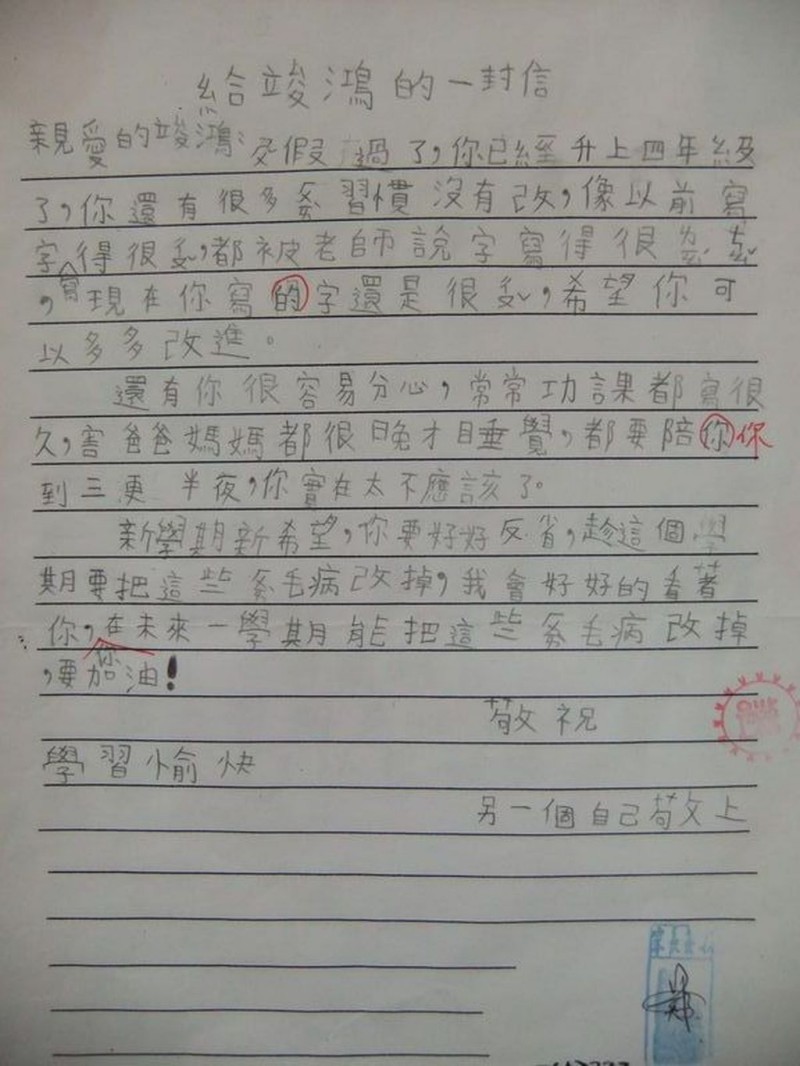 給竣鴻的一封信
親愛的竣鴻:放假過了,你已經升上四年級
了,你還有很多壞習慣沒有改,像以前寫
字寫得很亂,都被老師說字寫得很
,現在你寫的字還是很亂,希望你可
以多多改進。
還有你很容易分心,常常功課都寫很
久,害爸爸媽媽都很晚才睡覺,都要陪你你
到三更半夜,你實在太不應該了。
新學期新希望,你要好好反省,趁這個學
期要把這些毛病改掉,我會好好的看著
你,你在未來一學期能把這些毛病改掉
,要加油!
敬祝
學習愉快
另一個自己敬上